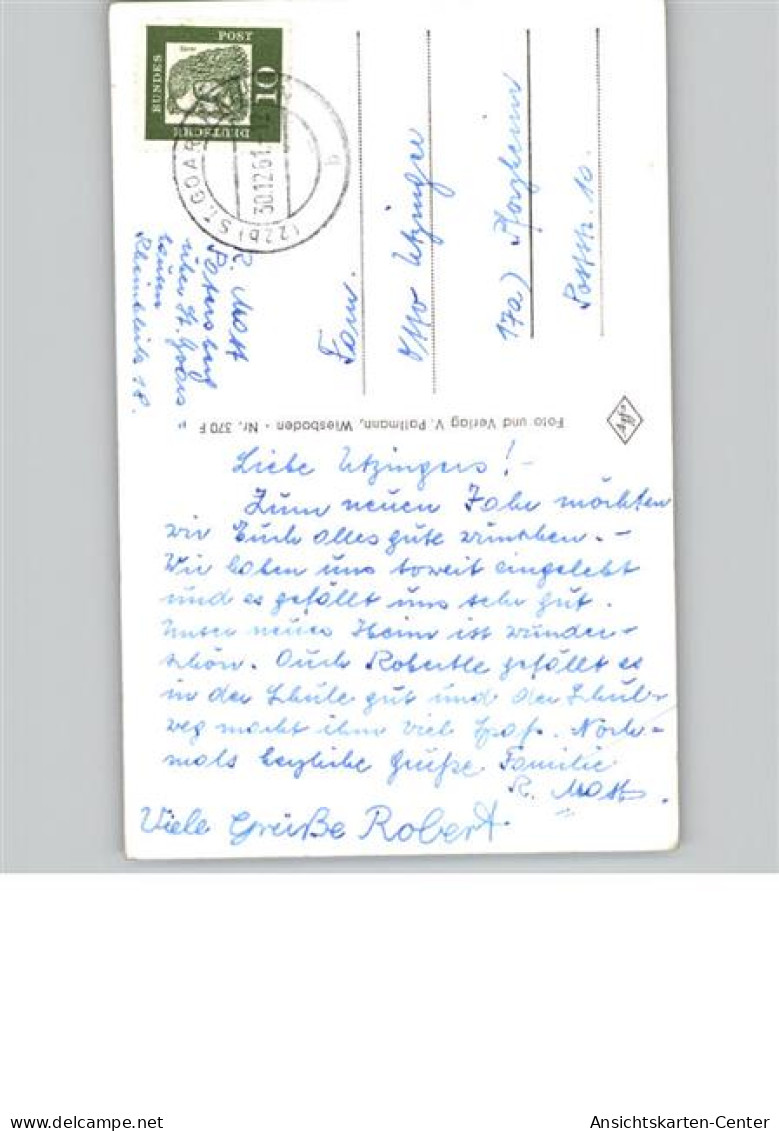 DEUTSCHE
BUNDES
POST
10
(22b) ST. GOAR
30.12.61
b
R. Mast
Patersberg
über St. Goars=
hausen
Rheinblick 18.
Fam.
Otto Utzinger
17a) Pforzheim
Poststr. 10.
Foto und Verlag V. Pallmann, Wiesbaden - Nr. 370 F
Agfa
Liebe Utzingers! -
Zum neuen Jahr möchten
wir Euch alles gute wünschen. -
Wir haben uns soweit eingelebt
und es gefällt uns sehr gut.
Unser neues Heim ist wunder-
schön. Auch Robertle gefällt es
in der Schule gut und der Schul-
weg macht ihm viel Spaß. Noch-
mals herzliche Grüße Familie
R. Mast.
Viele Grüße Robert
Ansichtskarten-Center